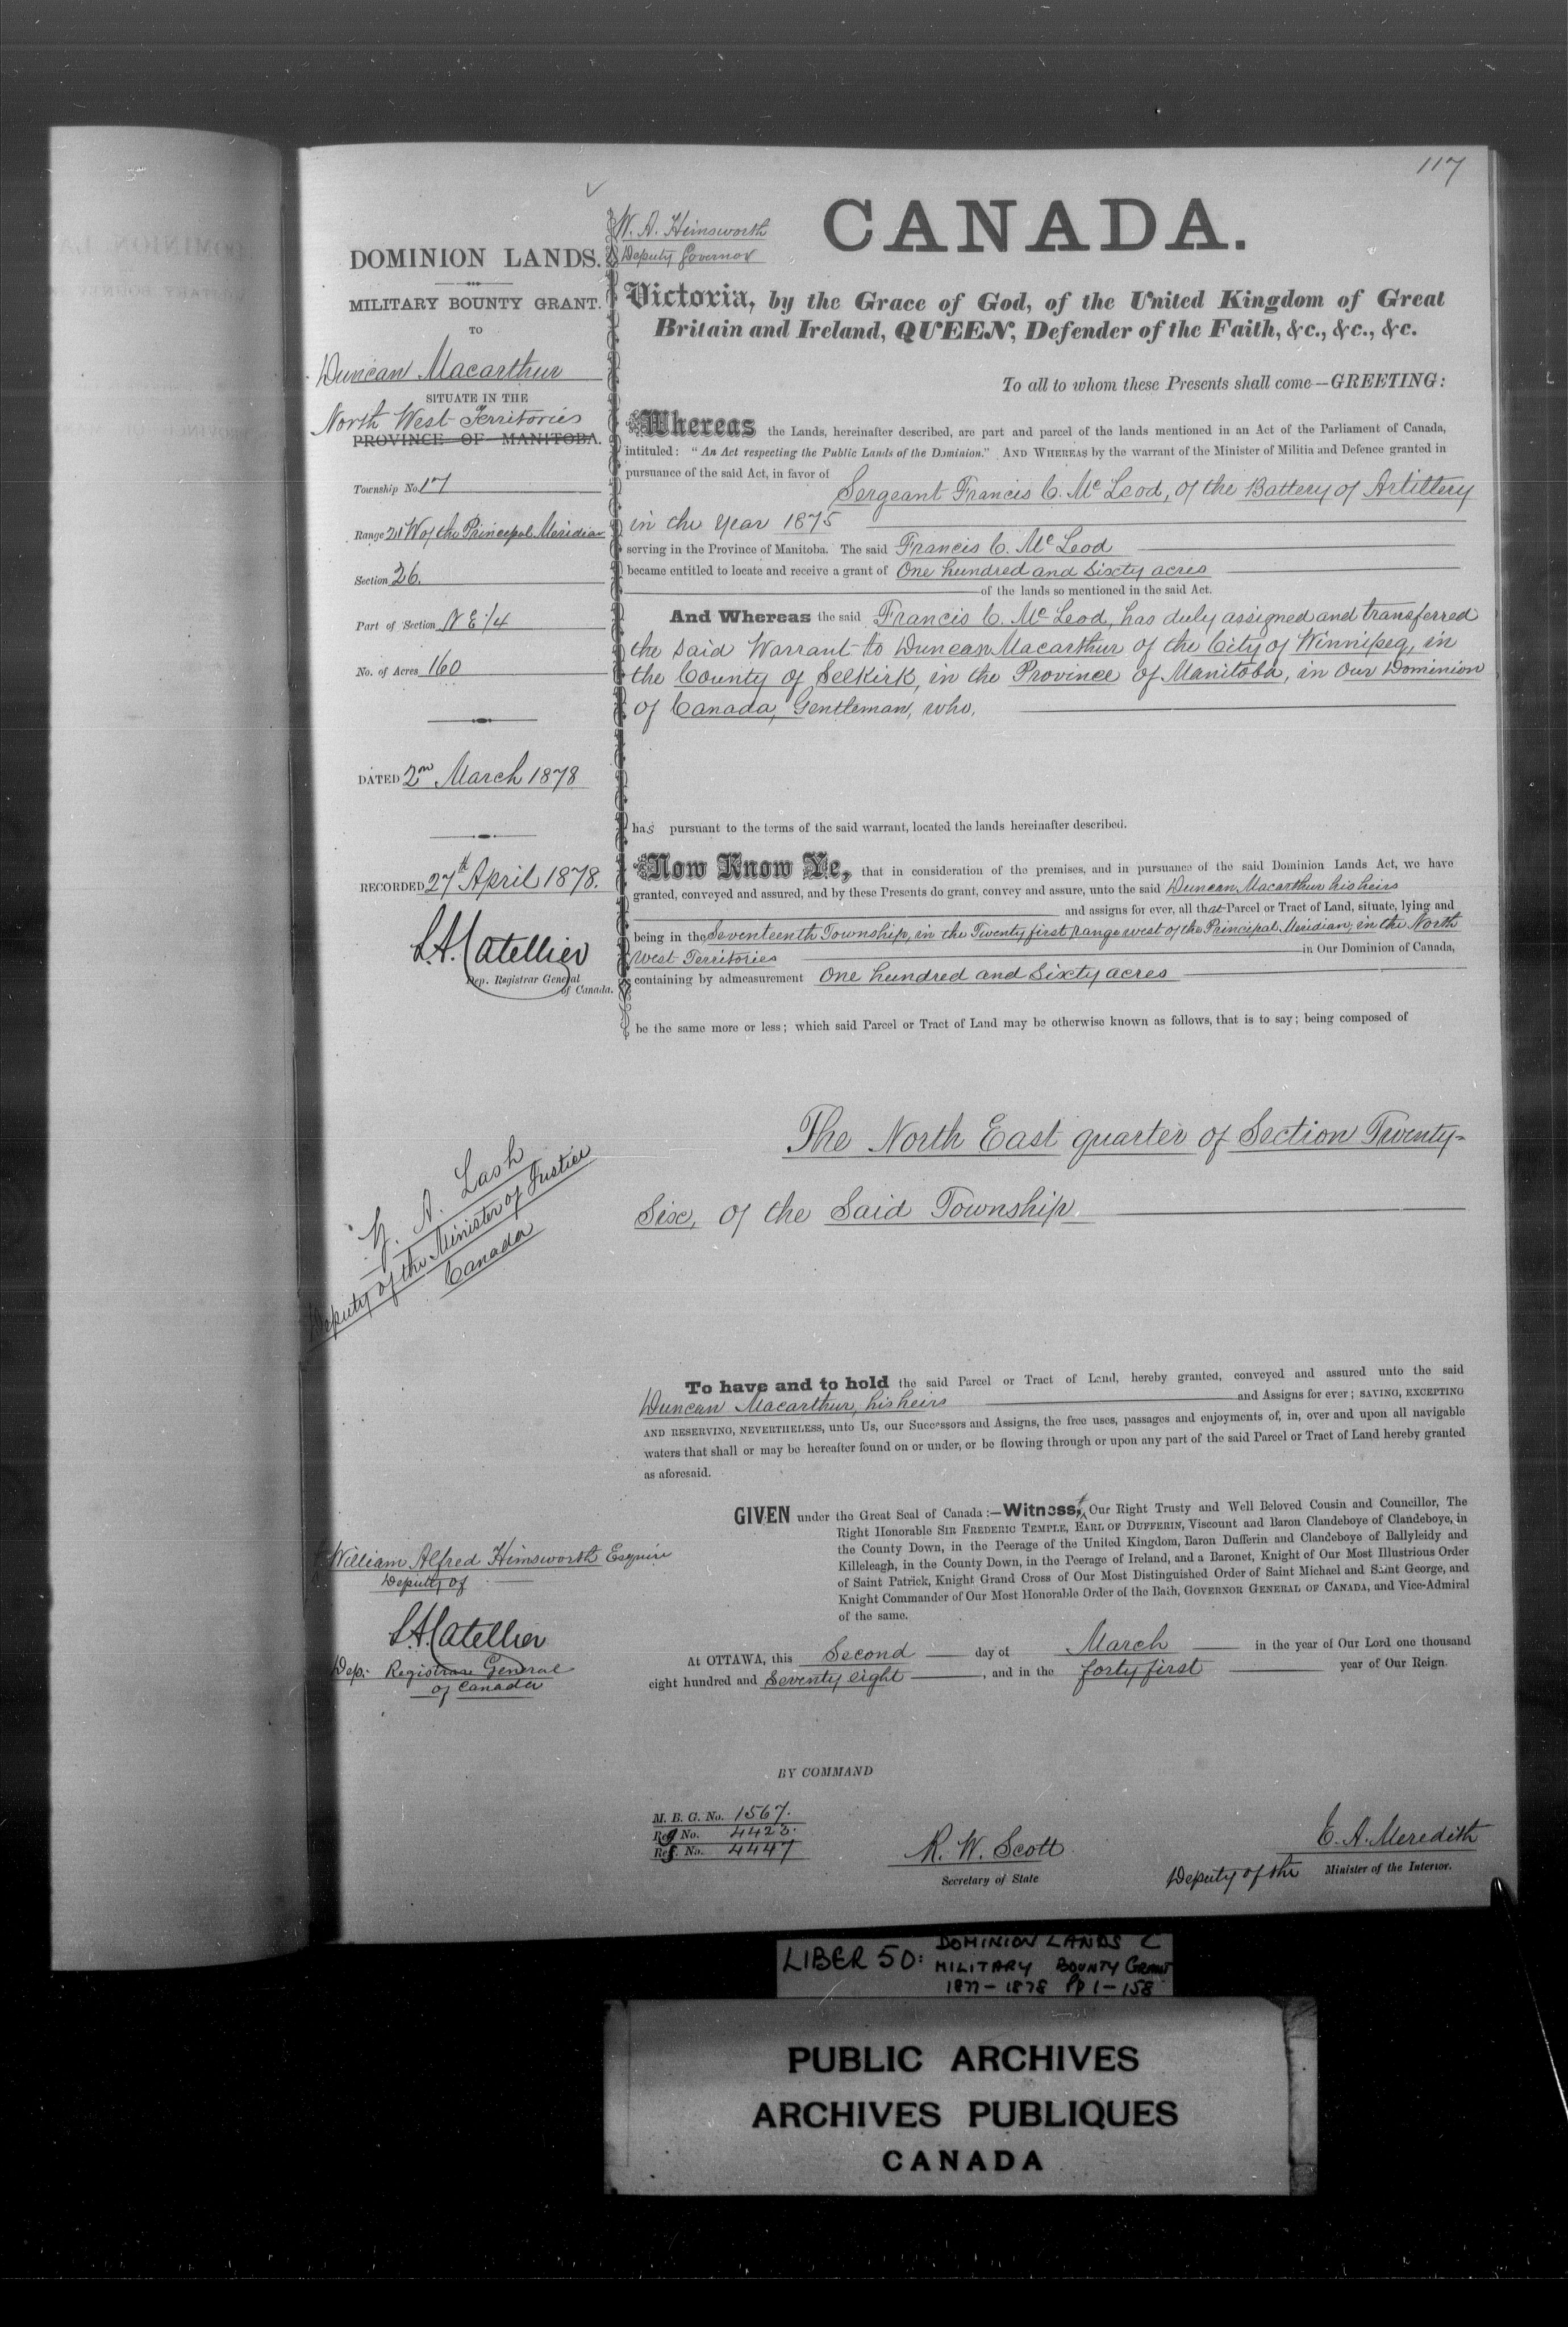 117
W. A. Himsworth
Deputy Governor
CANADA.
DOMINION LANDS.
MILITARY BOUNTY GRANT.
TO
Duncan Macarthur
SITUATE IN THE
North West Territories
PROVINCE OF MANITOBA.
Township No. 17
Range 21 W of the Principal Meridian
Section 26.
Part of Section N E 1/4
No. of Acres 160
DATED 2nd March 1878
RECORDED 27th April 1878.
L.A. Catellier
Dep. Registrar General
of Canada.
Z. A. Lash
Deputy of the Minister of Justice
Canada
William Alfred Himsworth Esquire
Deputy of
L.A. Catellier
Dep. Registrar General
of Canada
Victoria, by the Grace of God, of the United Kingdom of Great
Britain and Ireland, QUEEN, Defender of the Faith, &c., &c., &c.
To all to whom these Presents shall come—GREETING:
Whereas the Lands, hereinafter described, are part and parcel of the lands mentioned in an Act of the Parliament of Canada,
intituled: "An Act respecting the Public Lands of the Dominion." AND WHEREAS by the warrant of the Minister of Militia and Defence granted in
pursuance of the said Act, in favor of
Sergeant Francis C. McLeod, of the Battery of Artillery
in the Year 1875
serving in the Province of Manitoba. The said Francis C. McLeod
became entitled to locate and receive a grant of One hundred and Sixty acres
of the lands so mentioned in the said Act.
And Whereas the said Francis C. McLeod, has duly assigned and transferred
the said Warrant to Duncan Macarthur of the City of Winnipeg, in
the County of Selkirk, in the Province of Manitoba, in Our Dominion
of Canada, Gentleman, who,
has pursuant to the terms of the said warrant, located the lands hereinafter described.
Now Know Ye, that in consideration of the premises, and in pursuance of the said Dominion Lands Act, we have
granted, conveyed and assured, and by these Presents do grant, convey and assure, unto the said Duncan Macarthur his heirs
and assigns for ever, all that Parcel or Tract of Land, situate, lying and
being in the Seventeenth Township, in the Twenty first range west of the Principal Meridian, in the North
West Territories in Our Dominion of Canada,
containing by admeasurement One hundred and Sixty acres
be the same more or less; which said Parcel or Tract of Land may be otherwise known as follows, that is to say; being composed of
The North East quarter of Section Twenty-
Six, of the Said Township.
To have and to hold the said Parcel or Tract of Land, hereby granted, conveyed and assured unto the said
Duncan Macarthur, his heirs and Assigns for ever; SAVING, EXCEPTING
AND RESERVING, NEVERTHELESS, unto Us, our Successors and Assigns, the free uses, passages and enjoyments of, in, over and upon all navigable
waters that shall or may be hereafter found on or under, or be flowing through or upon any part of the said Parcel or Tract of Land hereby granted
as aforesaid.
GIVEN under the Great Seal of Canada:—Witness, Our Right Trusty and Well Beloved Cousin and Councillor, The
Right Honorable SIR FREDERIC TEMPLE, EARL OF DUFFERIN, Viscount and Baron Clandeboye of Clandeboye, in
the County Down, in the Peerage of the United Kingdom, Baron Dufferin and Clandeboye of Ballyleidy and
Killeleagh, in the County Down, in the Peerage of Ireland, and a Baronet, Knight of Our Most Illustrious Order
of Saint Patrick, Knight Grand Cross of Our Most Distinguished Order of Saint Michael and Saint George, and
Knight Commander of Our Most Honorable Order of the Bath, GOVERNOR GENERAL OF CANADA, and Vice-Admiral
of the same.
At OTTAWA, this Second day of March in the year of Our Lord one thousand
eight hundred and Seventy eight, and in the forty first year of Our Reign.
BY COMMAND
M. B. G. No. 1567.
Reg No. 4423.
Ref. No. 4447
R. W. Scott
Secretary of State
E. A. Meredith
Deputy of the Minister of the Interior.
LIBER 50: DOMINION LANDS C
MILITARY BOUNTY GRANT
1877-1878 Pp 1-158
PUBLIC ARCHIVES
ARCHIVES PUBLIQUES
CANADA